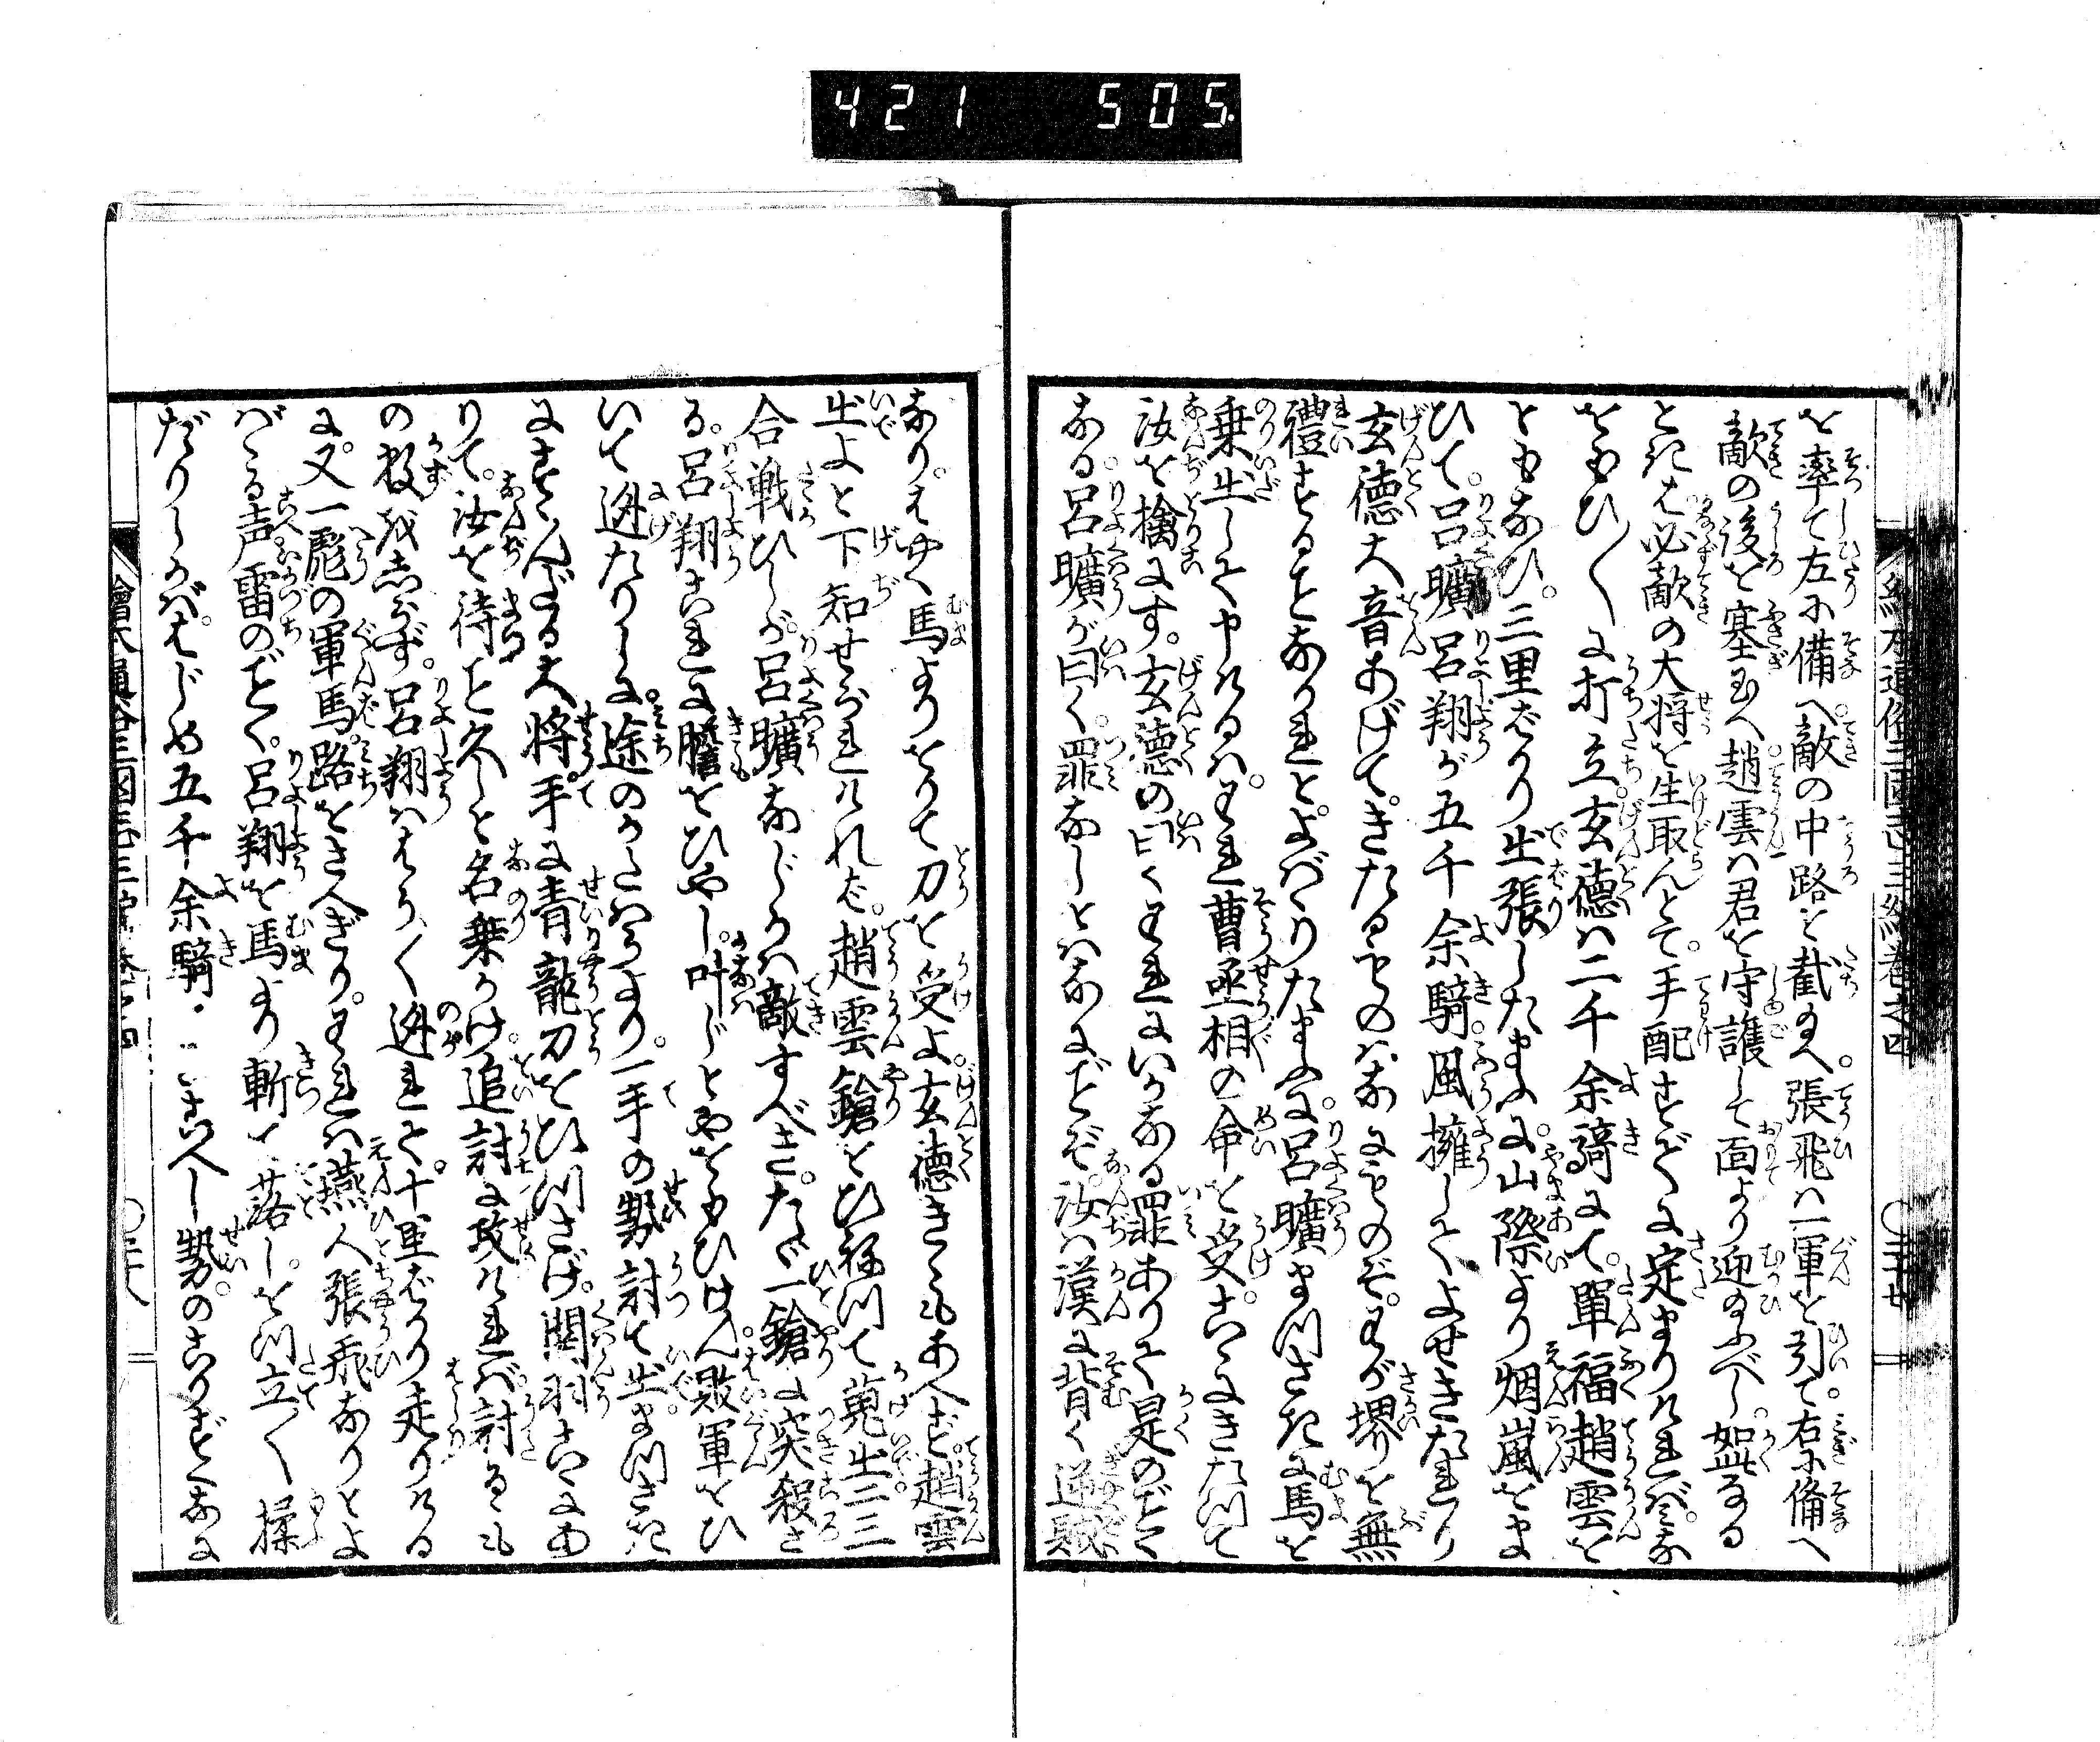 421 505
を率て左に備へ敵の中路を截玉へ。張飛ハ一軍を引て。右に備へ
敵の後を塞玉へ趙雲ハ君を守護して面より迎玉ふべし。如此なる
ときは必敵の大将を生取んとて。手配すでに定まりければ。みな
をもひ〱に打立玄徳ハ二千余騎にて。單福趙雲を
ともなひ。三里ばかり出張したまふに。山際より烟嵐をま
ひて。呂曠呂翔が五千余騎。風擁してよせきたれり
玄徳大音あげて。きたるものハなにものぞ。わが堺を無
禮するぞなれとよばゝりたまふに。呂曠まつさきに馬を
乗出して申けるハ。われ曹丞相の命を受。こゝにきたつて
汝を擒にす。玄徳の曰くわれにいかなる罪ありて是のごとく
なる。呂曠が曰く。罪なしとハなにごとぞ。汝ハ漢に背く逆賊
なり。はやく馬よりをりて刀を受よ。玄徳きゝもあへず。趙雲
出よと下知せられければ。趙雲鎗をひねつて蒐出三三
合戦ひしが。呂曠なじかハ敵すべき。たゞ一鎗に突殺さ
る。呂翔これに膽をひやし。叶じとやをもひけん敗軍をひ
いて迯たりしに。途のかたハらより。一手の勢討て出。まつさき
にすゝんだる大将。手に青龍刀をひつさげ。関羽こゝにあ
りて。汝を待と久しと名乗かけ。追討に攻ければ。討るゝも
の数をしらず。呂翔ハはう〱迯れて。十里ばかり走りける
に。又一彪の軍馬。路をさへぎり。われハ燕人張飛なりとよ
ばゝる声雷のごとく。呂翔を馬より斬て落し。をつ立〱揉
だりしかば。はじめ五千余騎。ときこへし勢のこりずくなに